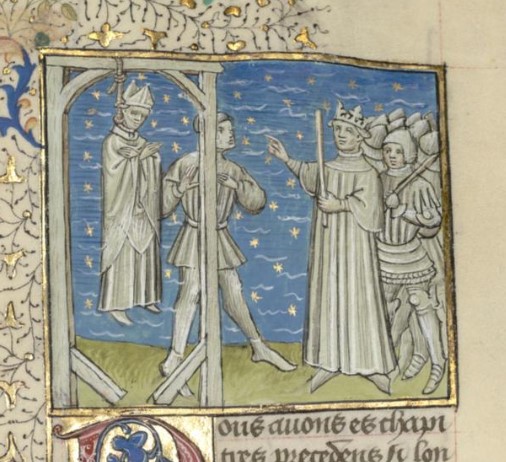 Nous auons es chapi
tres precedens si lon